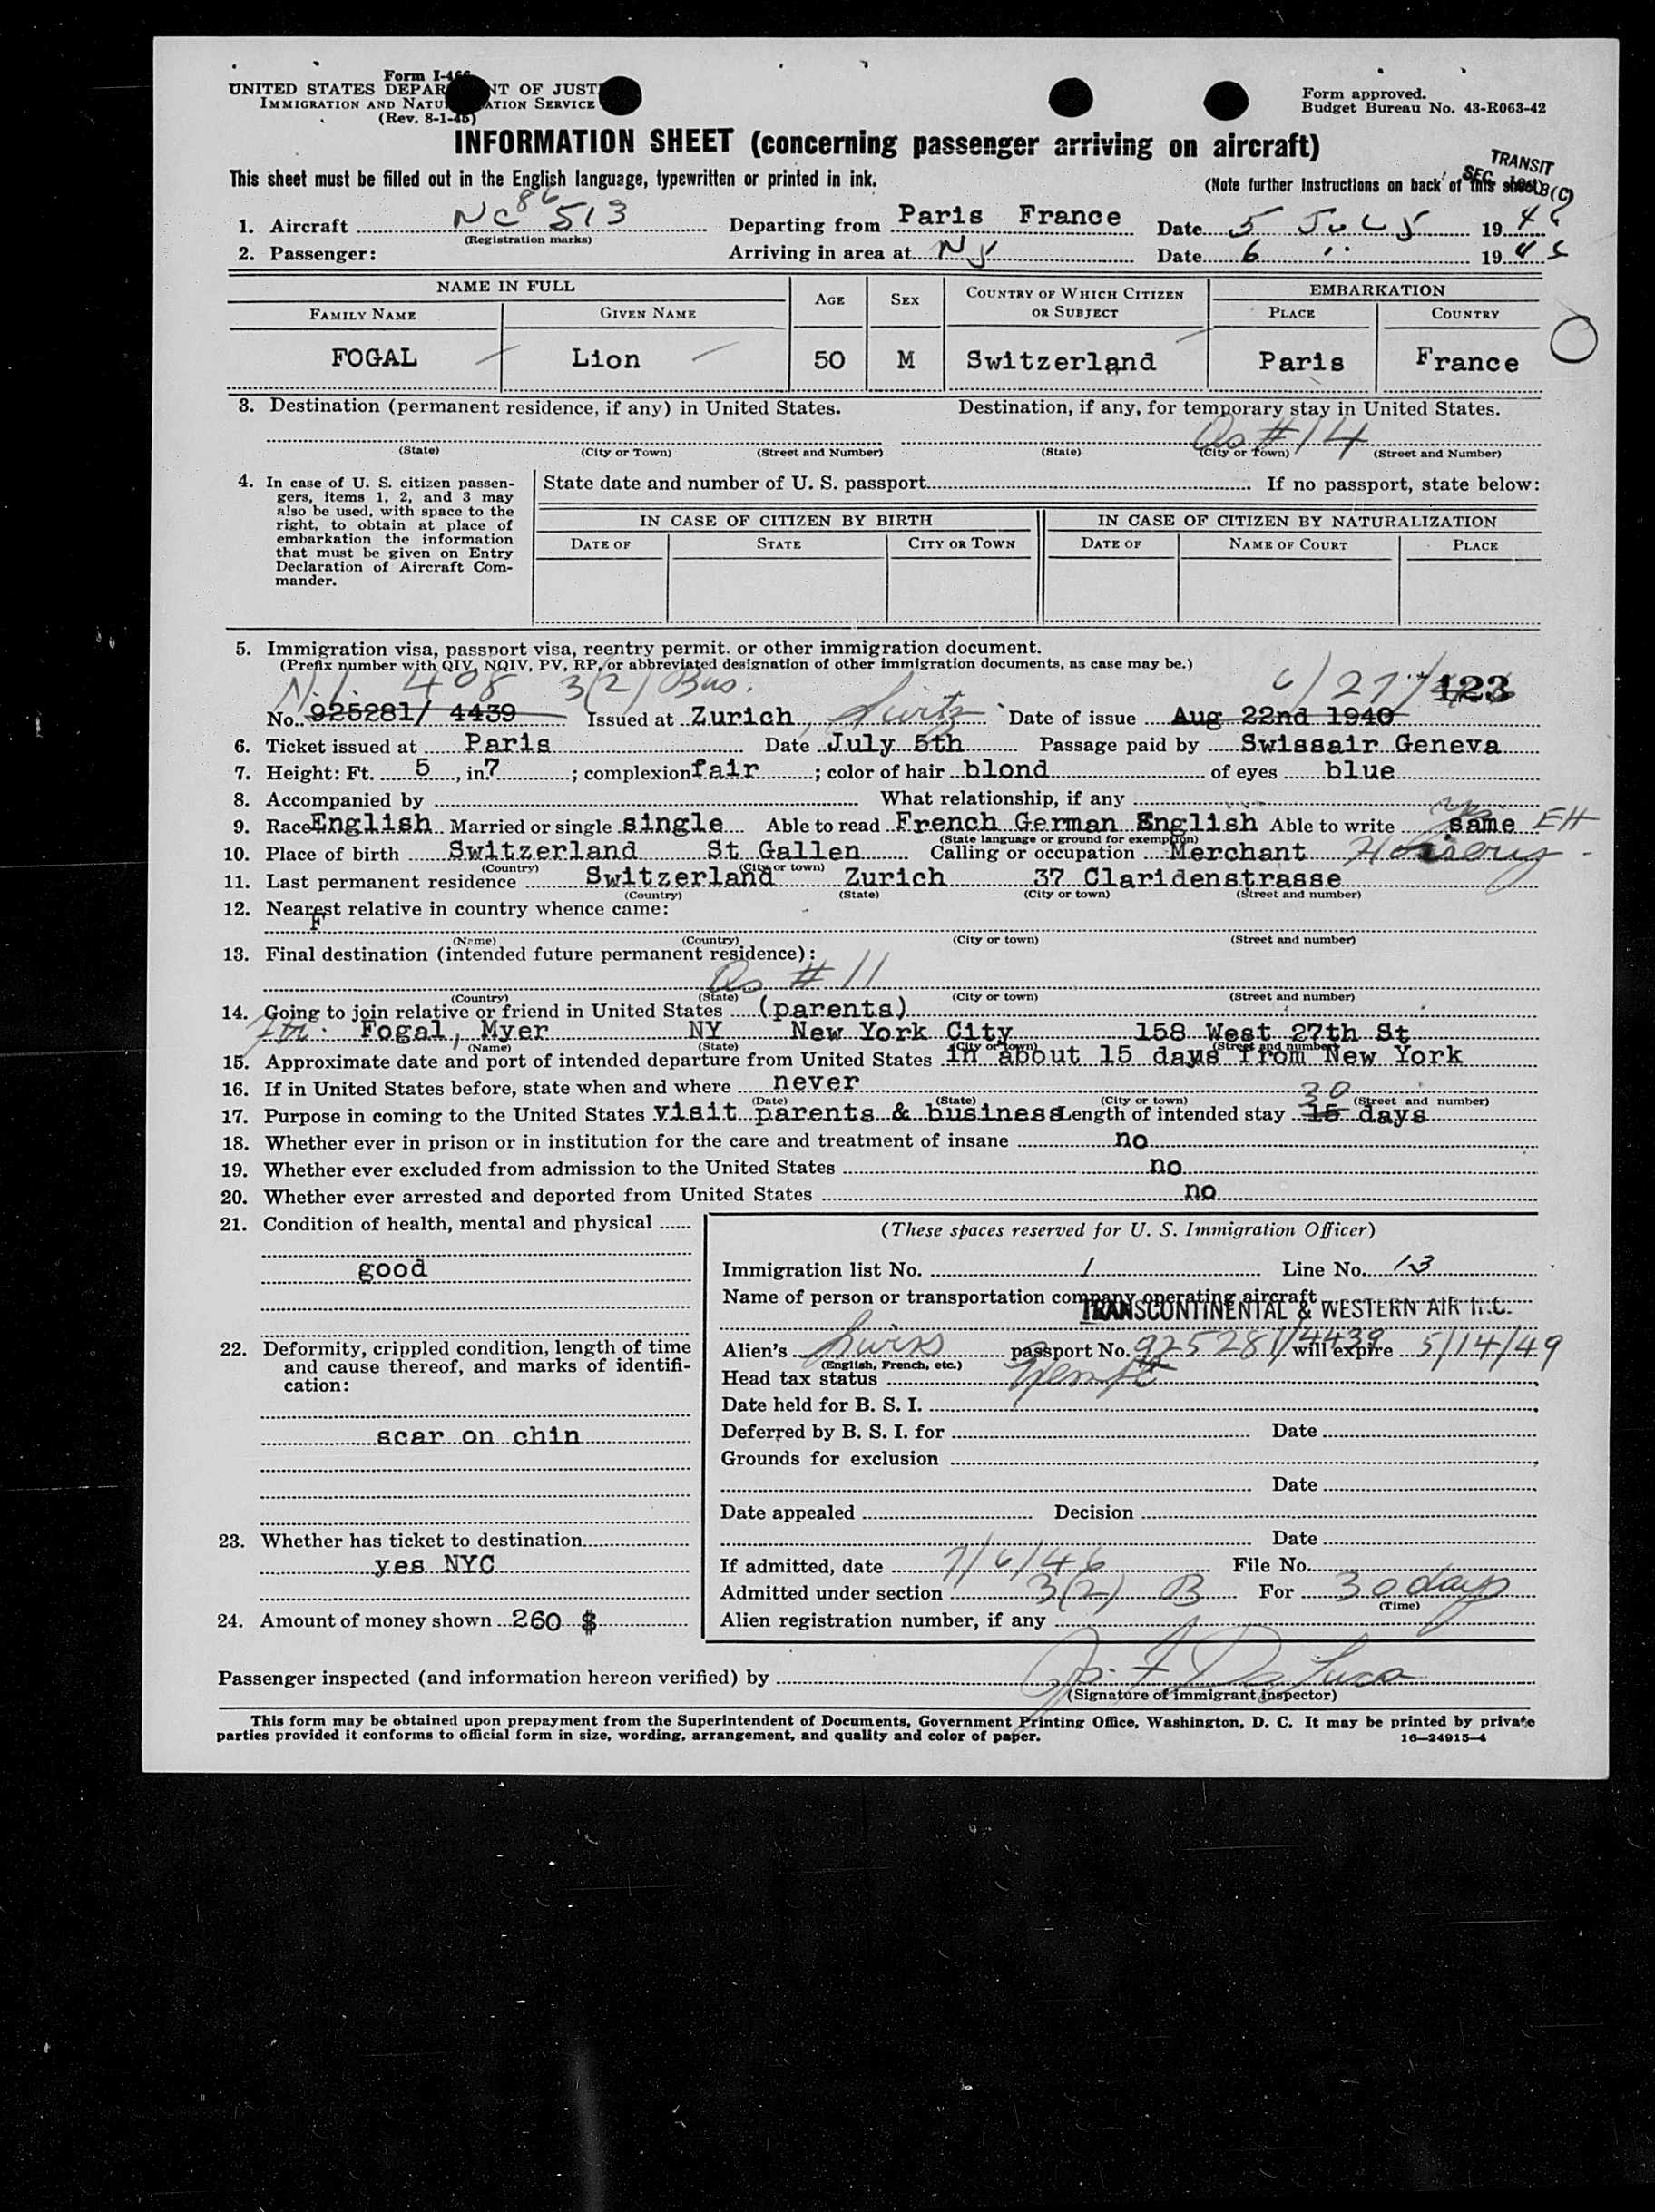 Form I-466
UNITED STATES DEPARTMENT OF JUSTICE
IMMIGRATION AND NATURALIZATION SERVICE
(Rev. 8-1-45)
Form approved.
Budget Bureau No. 43-R063-42
INFORMATION SHEET (concerning passenger arriving on aircraft)
TRANSIT
This sheet must be filled out in the English language, typewritten or printed in ink. (Note further instructions on back of this sheet)
1. Aircraft NC 86513 Departing from Paris France Date 5 July 1946
(Registration marks)
2. Passenger: Arriving in area at NY Date 6 " 194
NAME IN FULL AGE SEX COUNTRY OF WHICH CITIZEN OR SUBJECT EMBARKATION
FAMILY NAME GIVEN NAME PLACE COUNTRY
FOGAL Lion 50 M Switzerland Paris France
3. Destination (permanent residence, if any) in United States. Destination, if any, for temporary stay in United States.
As #14
(State) (City or Town) (Street and Number) (State) (City or Town) (Street and Number)
4. In case of U. S. citizen passengers, items 1, 2, and 3 may also be used, with space to the right, to obtain at place of embarkation the information that must be given on Entry Declaration of Aircraft Commander.
State date and number of U. S. passport If no passport, state below:
IN CASE OF CITIZEN BY BIRTH IN CASE OF CITIZEN BY NATURALIZATION
DATE OF STATE CITY OR TOWN DATE OF NAME OF COURT PLACE
5. Immigration visa, passport visa, reentry permit, or other immigration document.
(Prefix number with QIV, NQIV, PV, RP, or abbreviated designation of other immigration documents, as case may be.)
408 3(2) Bus. 6/27/46 123
No. 925281/ 4439 Issued at Zurich, Switz Date of issue Aug 22nd 1940
6. Ticket issued at Paris Date July 5th Passage paid by Swissair Geneva
7. Height: Ft. 5, in. 7; complexion fair; color of hair blond of eyes blue
8. Accompanied by What relationship, if any
9. Race English Married or single single Able to read French German English Able to write same EH
(State language or ground for exemption)
10. Place of birth Switzerland St Gallen Calling or occupation Merchant Hosiery
(Country) (City or town)
11. Last permanent residence Switzerland Zurich 37 Claridenstrasse
(Country) (State) (City or town) (Street and number)
12. Nearest relative in country whence came:
F
(Name) (Country) (City or town) (Street and number)
13. Final destination (intended future permanent residence):
As #11
(Country) (State) (City or town) (Street and number)
14. Going to join relative or friend in United States (parents)
Fogal, Myer NY New York City 158 West 27th St
(Name) (State) (City or town) (Street and number)
15. Approximate date and port of intended departure from United States in about 15 days from New York
16. If in United States before, state when and where never
(Date) (State) (City or town) (Street and number)
17. Purpose in coming to the United States visit parents & business Length of intended stay 15 30 days
18. Whether ever in prison or in institution for the care and treatment of insane no
19. Whether ever excluded from admission to the United States no
20. Whether ever arrested and deported from United States no
21. Condition of health, mental and physical
good
22. Deformity, crippled condition, length of time and cause thereof, and marks of identification:
scar on chin
23. Whether has ticket to destination
yes NYC
24. Amount of money shown 260 $
(These spaces reserved for U. S. Immigration Officer)
Immigration list No. 1 Line No. 13
Name of person or transportation company operating aircraft
TRANSCONTINENTAL & WESTERN AIR INC.
Alien's Swiss passport No. 925281/4439 will expire 5/14/49
(English, French, etc.)
Head tax status Exempt
Date held for B. S. I.
Deferred by B. S. I. for Date
Grounds for exclusion
Date
Date appealed Decision
Date
If admitted, date 7/6/46 File No.
Admitted under section 3(2) B For 30 days
(Time)
Alien registration number, if any
Passenger inspected (and information hereon verified) by
(Signature of immigrant inspector)
This form may be obtained upon prepayment from the Superintendent of Documents, Government Printing Office, Washington, D. C. It may be printed by private
parties provided it conforms to official form in size, wording, arrangement, and quality and color of paper.
16—24915-4